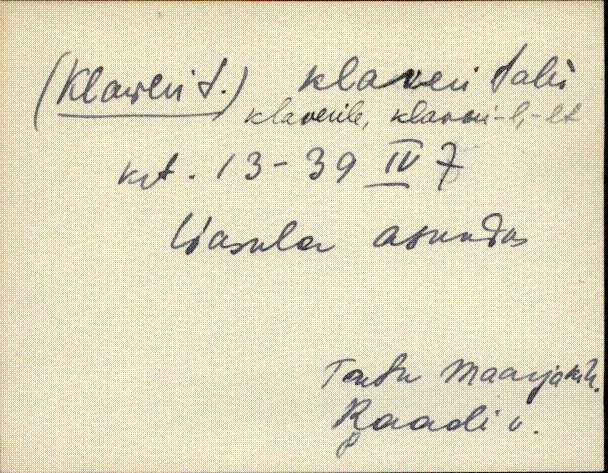 (Klaveri t.) klaveri talu
klaverile, klaveri-l, -lt
krt. 13-39 IV 7
Vasula asundus
Tartu Maarja kih.
Raadi v.